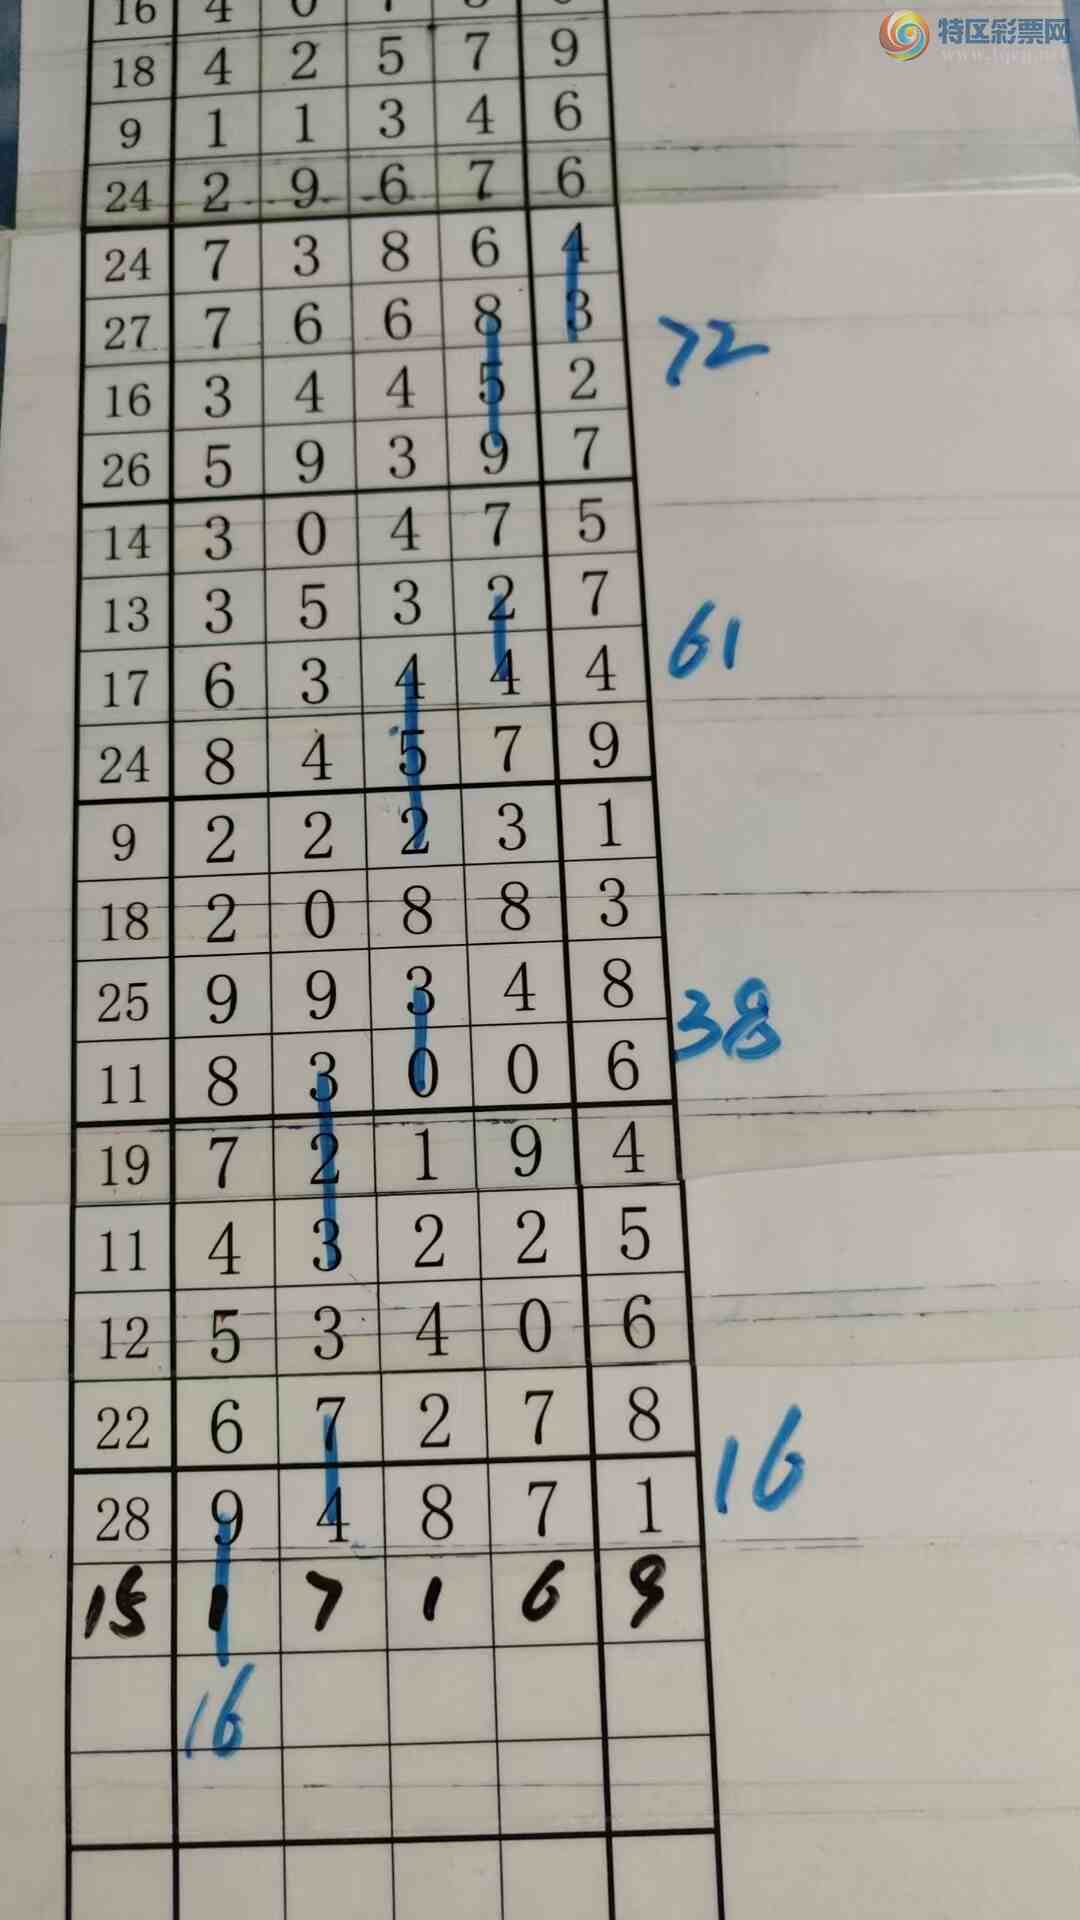 特区彩票网
18 4 2 5 7 9
9 1 1 3 4 6
24 2 9 6 7 6
24 7 3 8 6 4
27 7 6 6 8 3
72
16 3 4 4 5 2
26 5 9 3 9 7
14 3 0 4 7 5
13 3 5 3 2 7
61
17 6 3 4 4 4
24 8 4 5 7 9
9 2 2 2 3 1
18 2 0 8 8 3
25 9 9 3 4 8
38
11 8 3 0 0 6
19 7 2 1 9 4
11 4 3 2 2 5
12 5 3 4 0 6
22 6 7 2 7 8
16
28 9 4 8 7 1
15 1 7 1 6 9
16